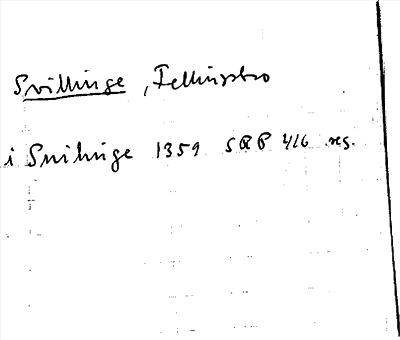 Svillinge, Fellingsbro
i Snilinge 1359 SRP 416 reg.